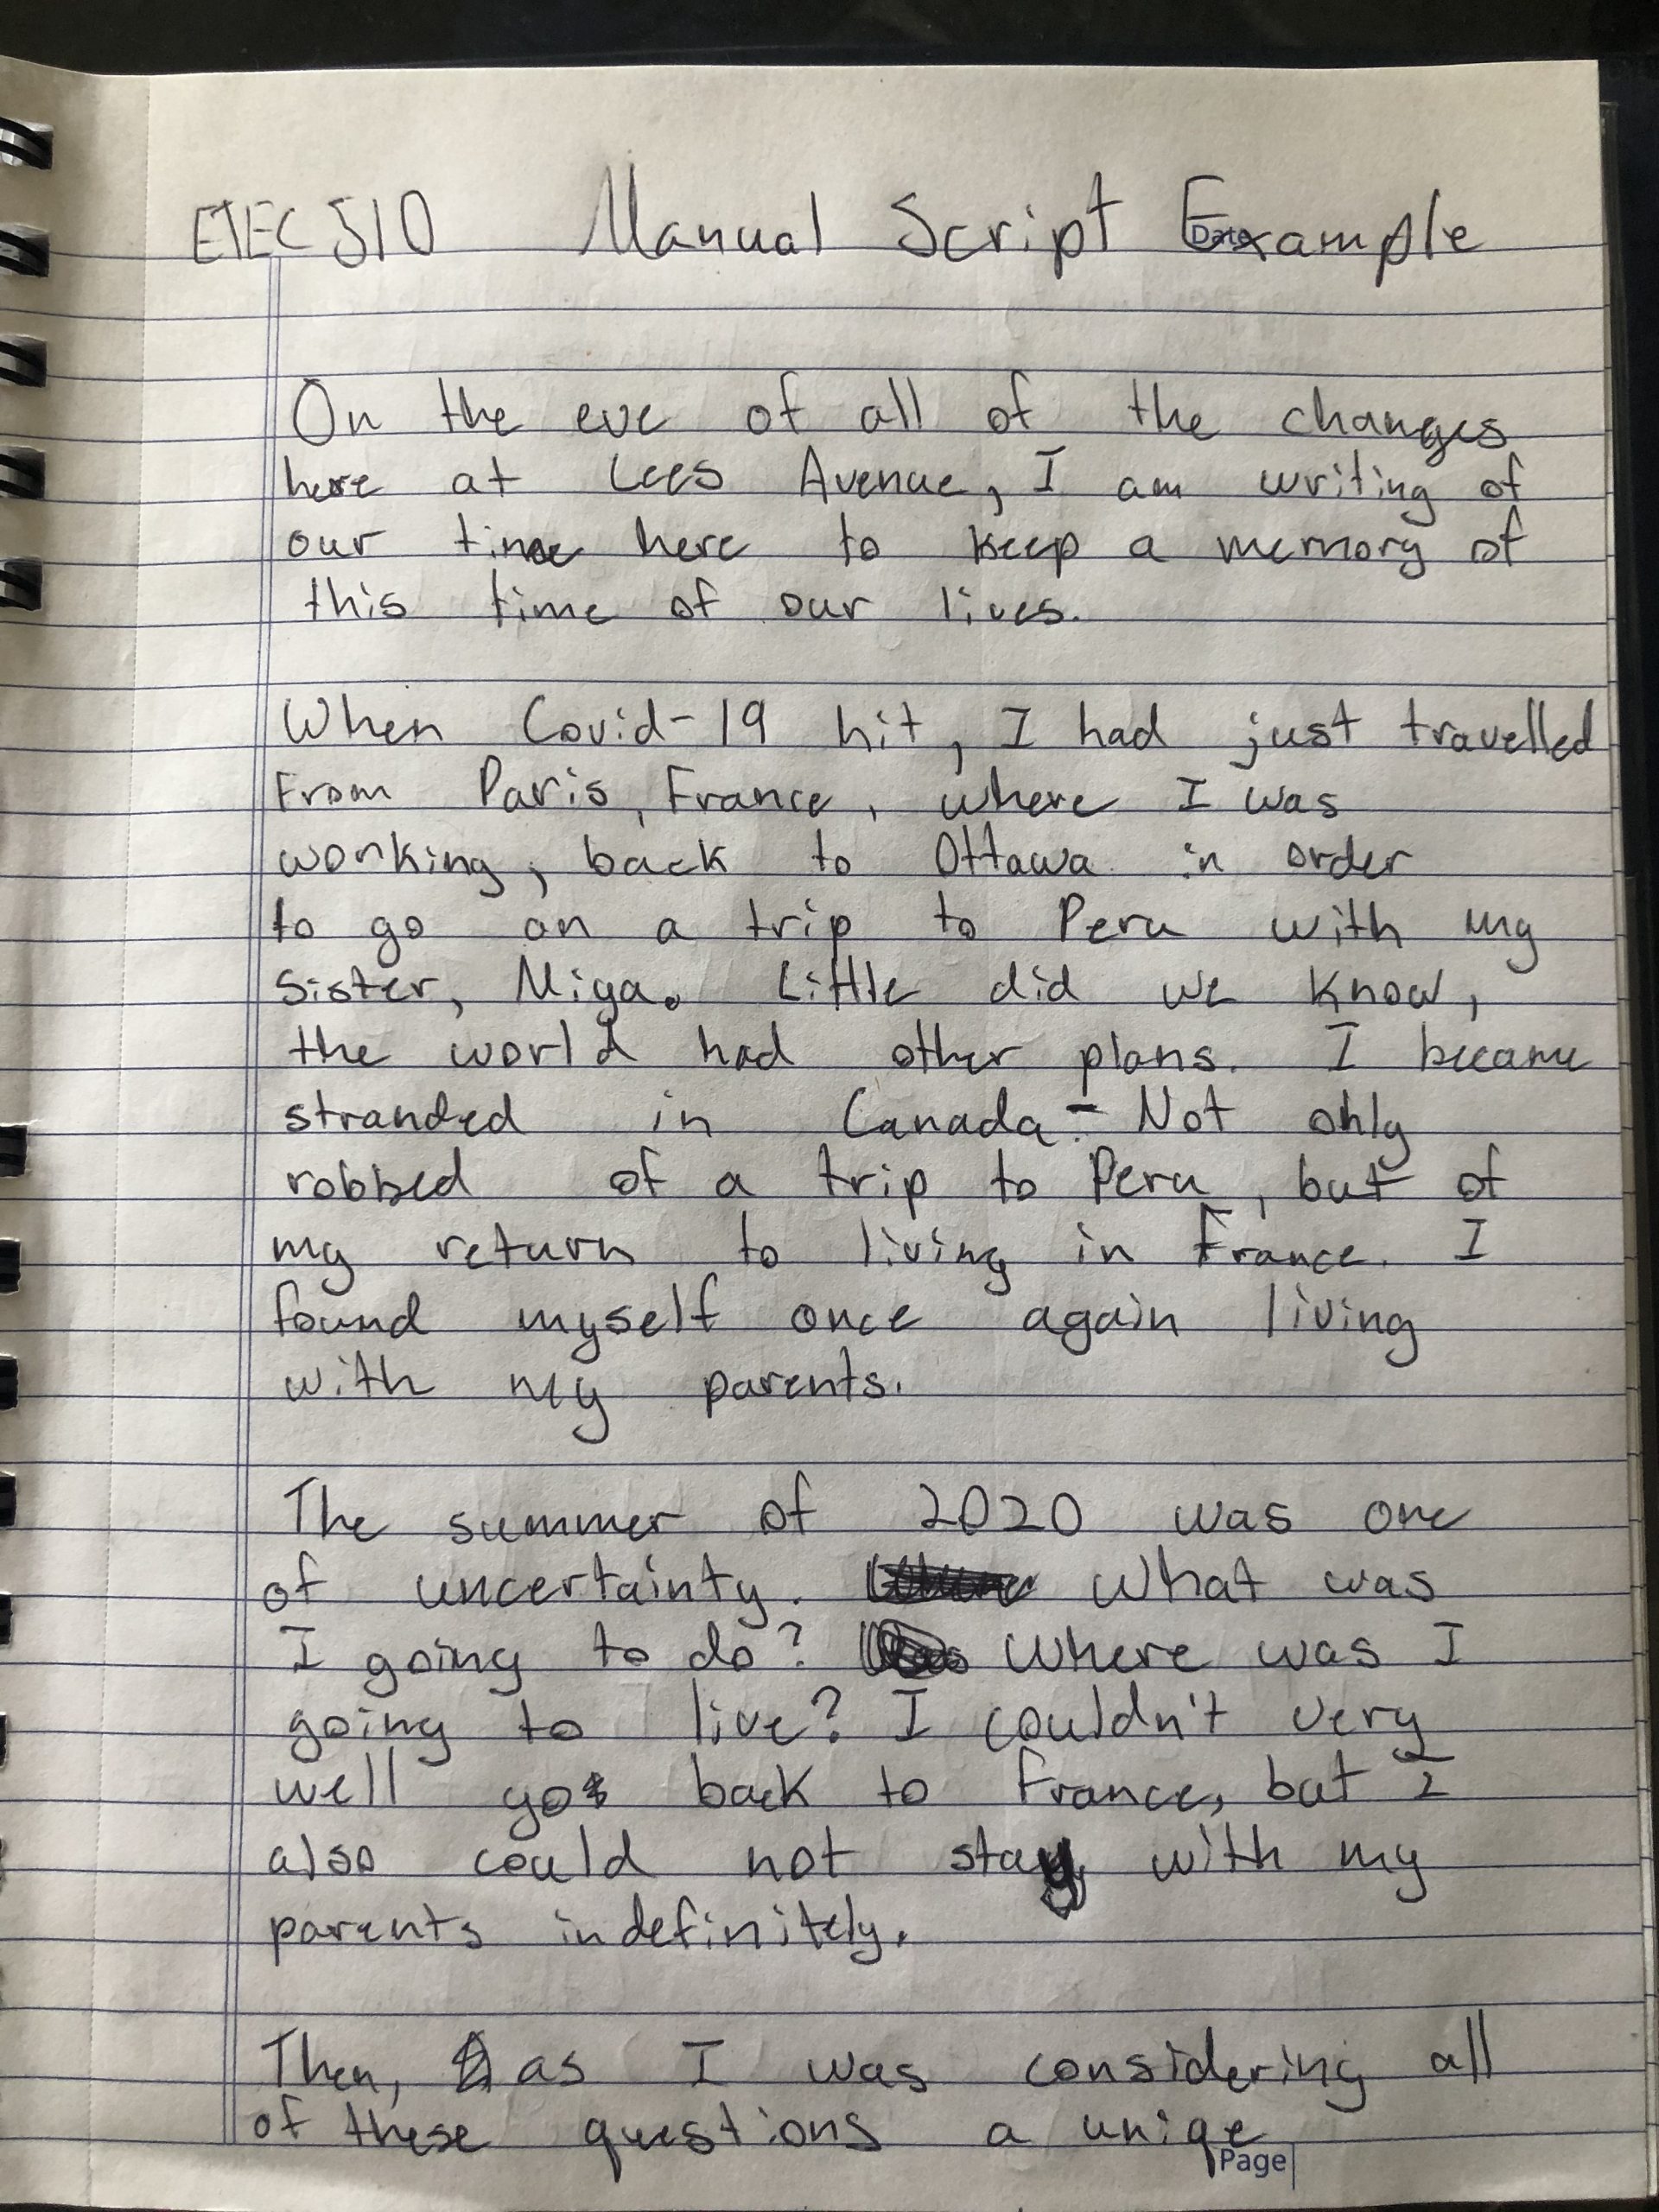 ETEC 510 Manual Script Example
Date
On the eve of all of the changes
here at Lees Avenue, I am writing of
our time here to keep a memory of
this time of our lives.
When Covid-19 hit, I had just travelled
from Paris, France, where I was
working, back to Ottawa in order
to go on a trip to Peru with my
sister, Miya. Little did we know,
the world had other plans. I became
stranded in Canada - Not only
robbed of a trip to Peru, but of
my return to living in France. I
found myself once again living
with my parents.
The summer of 2020 was one
of uncertainty. What was
I going to do? Where was I
going to live? I couldn't very
well go back to France, but I
also could not stay with my
parents indefinitely.
Then, as I was considering all
of these questions a uniqe
Page